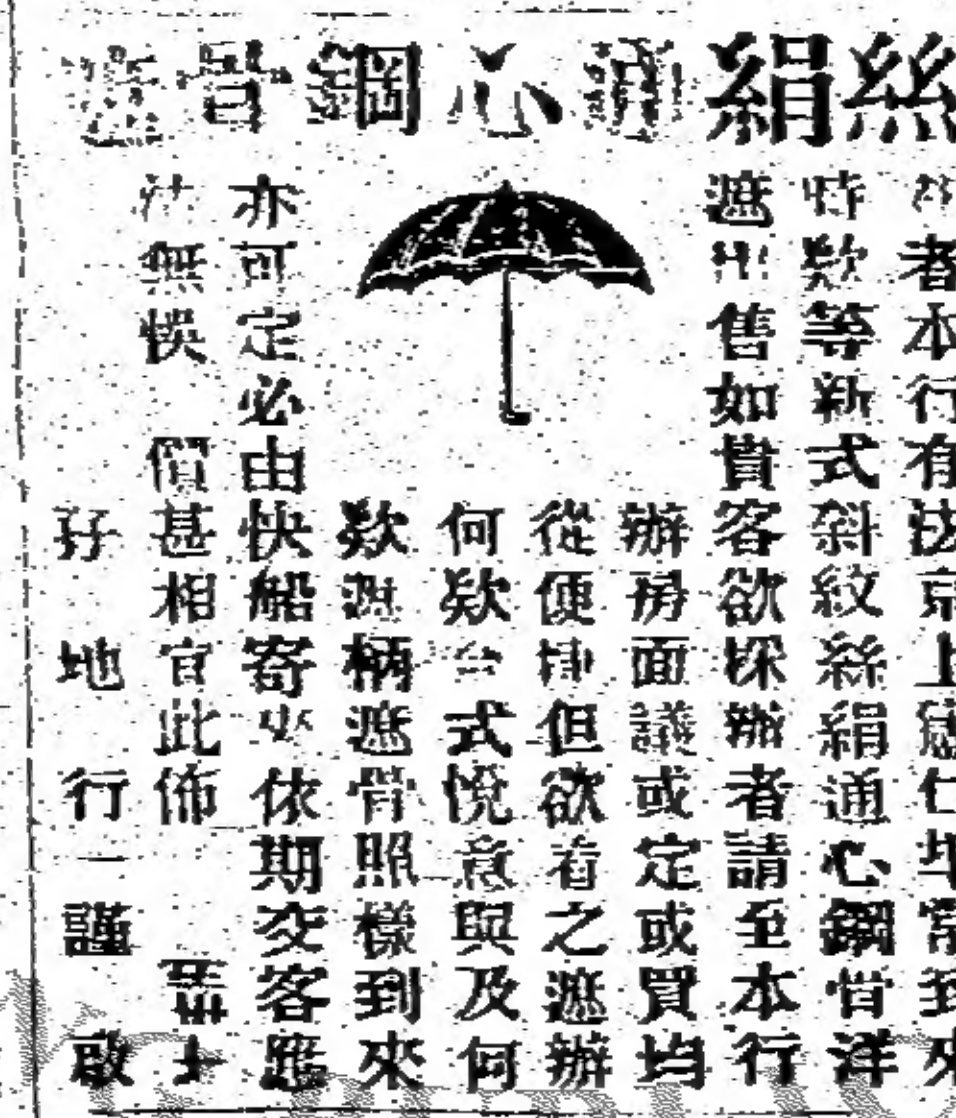 絲絹通心鋼骨遮
者本行有法京上 仁埠常到來
時款等新式斜紋絲絹通心鋼骨洋
遮出售如貴客欲採辦者請至本行
辦房面議或定或買均
從便 但欲看之遮辦
何款 式悅意與及何
款遮柄遮骨照樣到來
亦可定必由快船寄 依期交客應
無悞 價甚相宜此佈
孖地行 謹啟